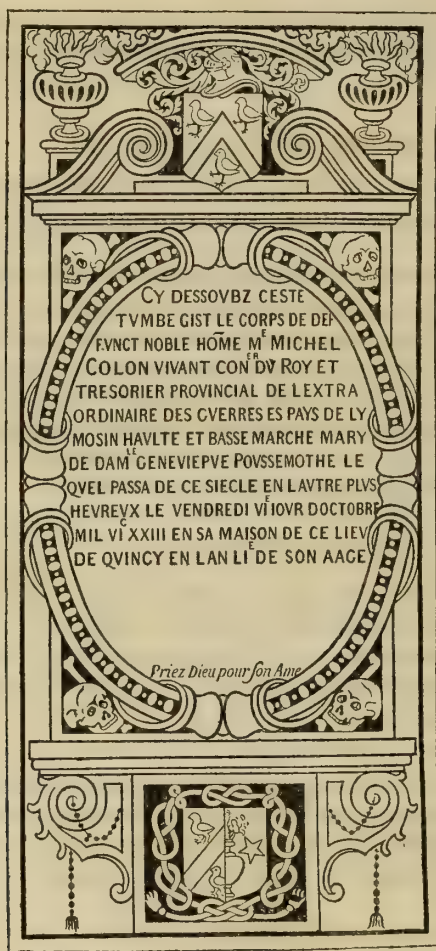 CY DESSOVBZ CESTE
TVMBE GIST LE CORPS DE DEF
FVNCT NOBLE HOM̃E Mᴱ MICHEL
COLON VIVANT CONᴱᴿ DV ROY ET
TRESORIER PROVINCIAL DE LEXTRA
ORDINAIRE DES GVERRES ES PAYS DE LY
MOSIN HAVLTE ET BASSE MARCHE MARY
DE DAMᴸᴱ GENEVIEPVE POVSSEMOTHE LE
QVEL PASSA DE CE SIECLE EN LAVTRE PLVS
HEVREVX LE VENDREDI VIᴱ IOVR DOCTOBRE
MIL VIᶜ XXIII EN SA MAISON DE CE LIEV
DE QVINCY EN LAN LIᴱ DE SON AAGE
Priez Dieu pour ſon Ame